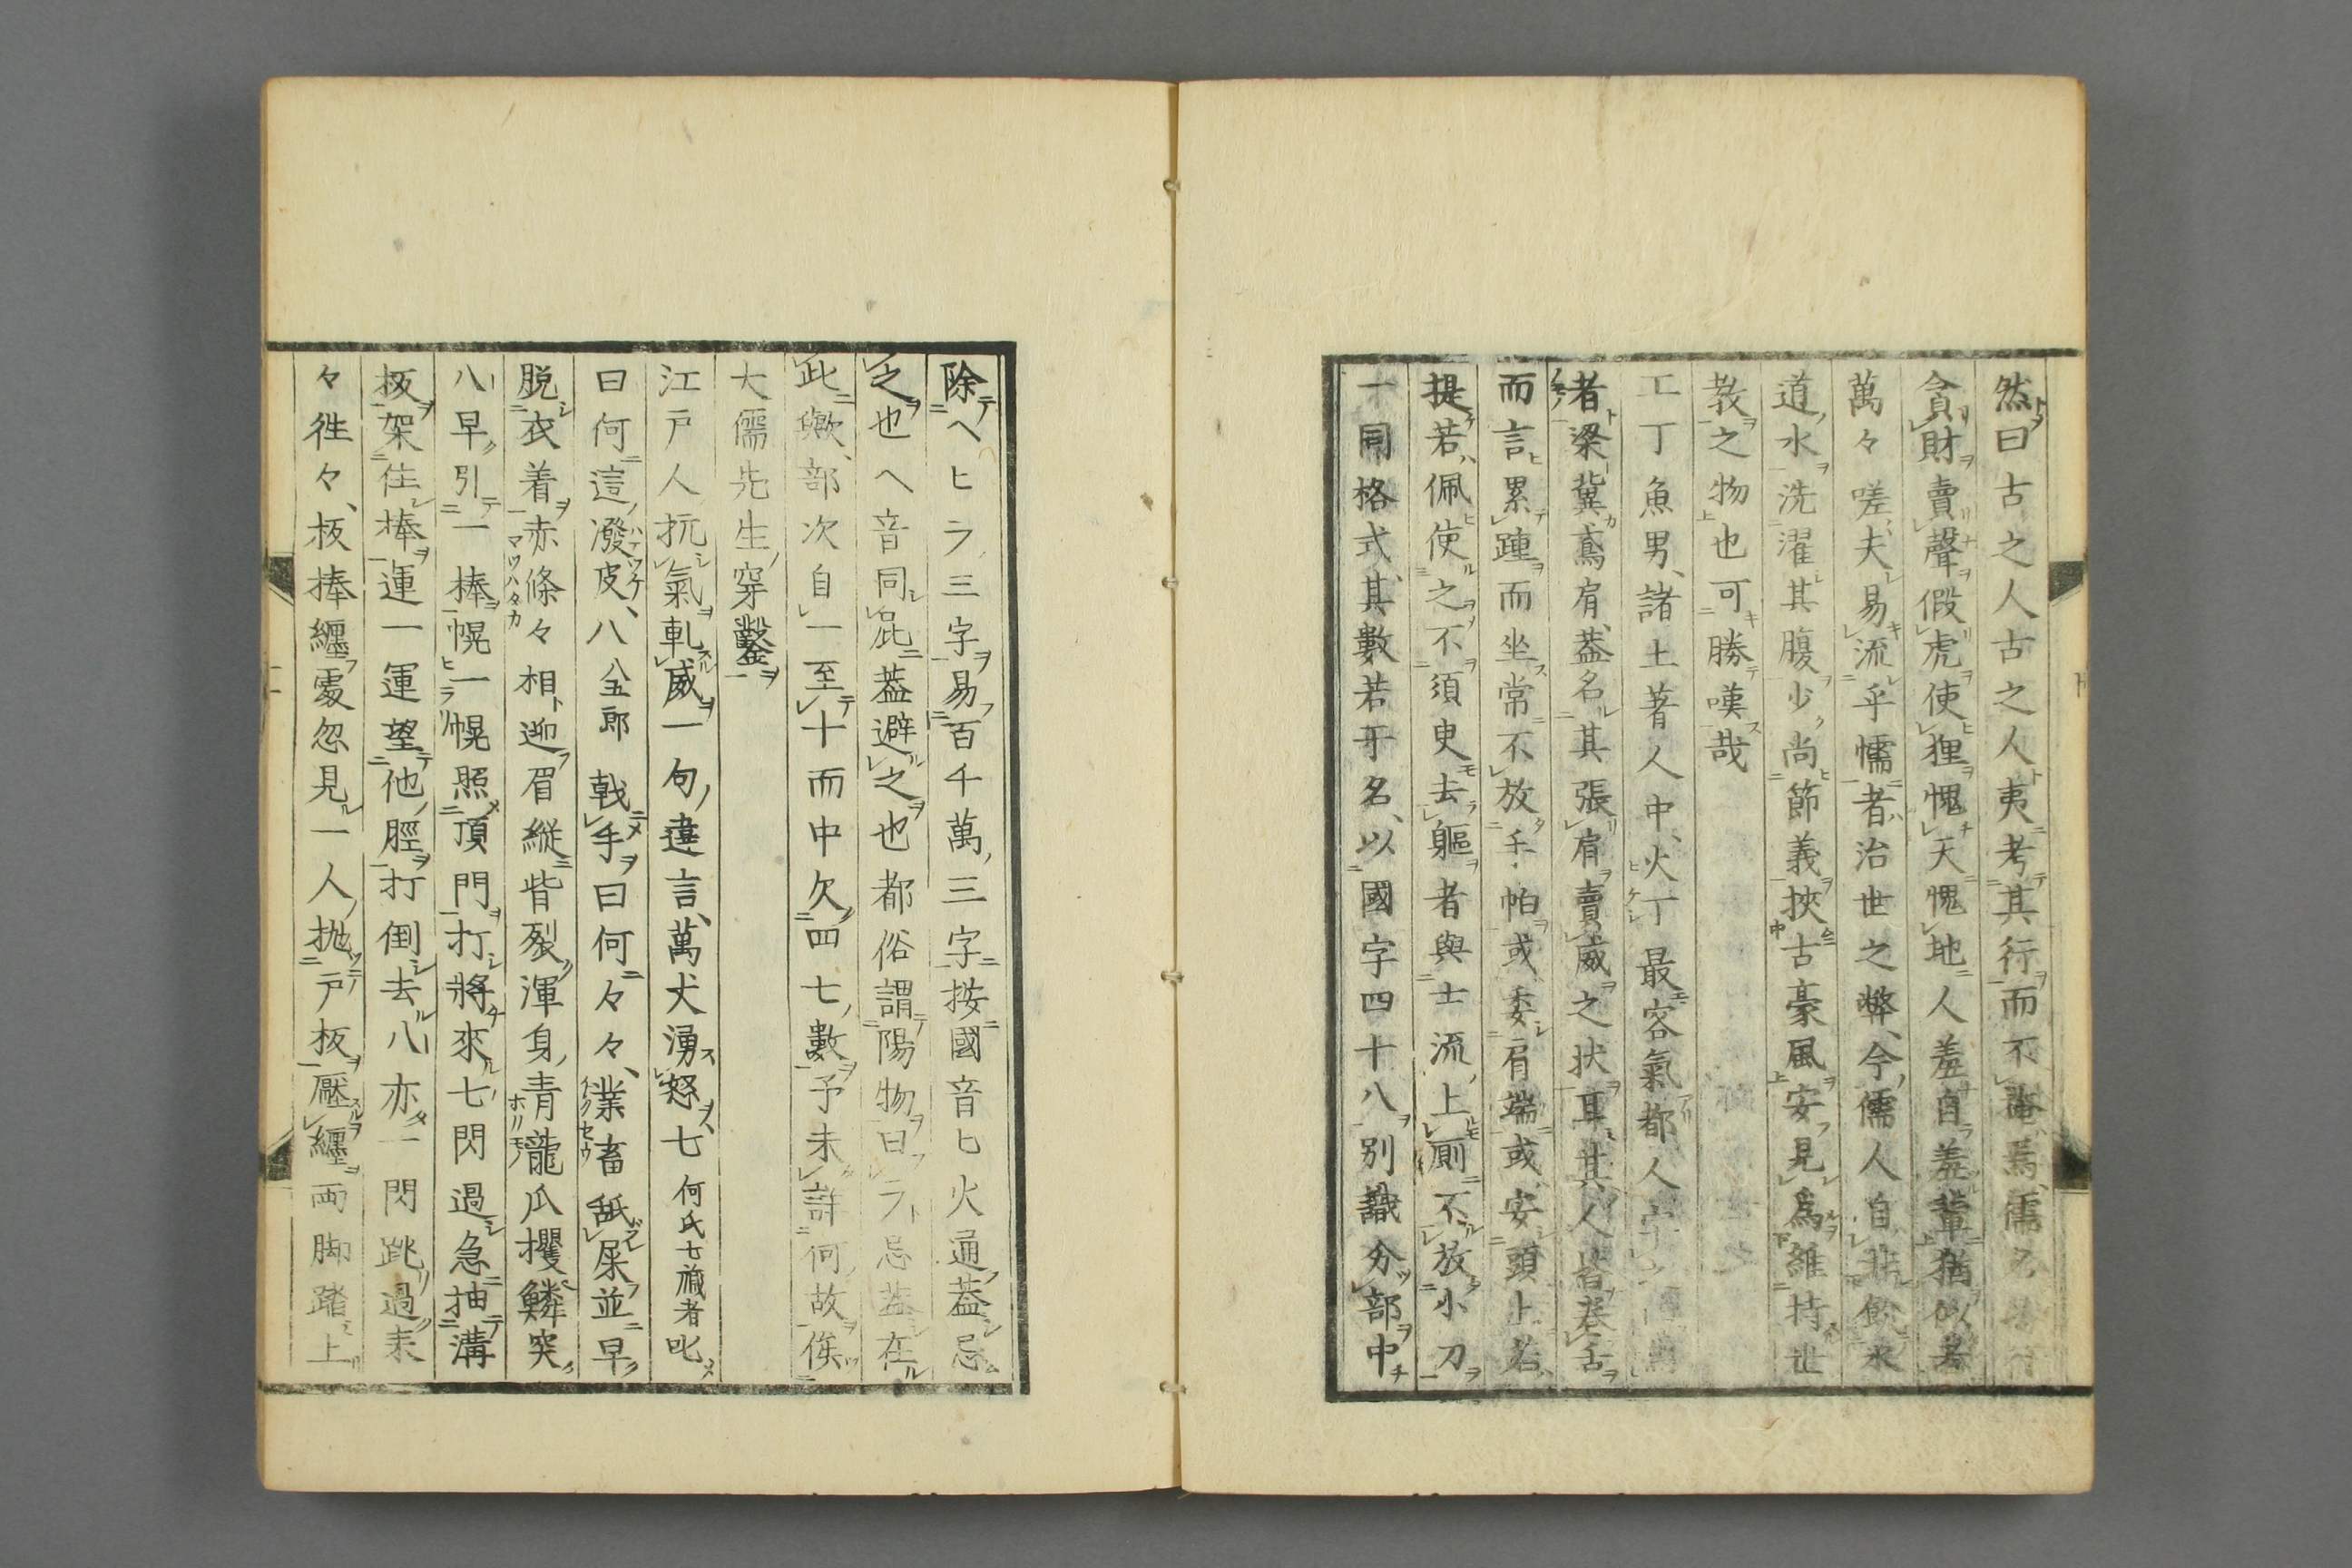 然曰古之人古之人夷考其行而不掩焉儒名
貪財賣聲假虎使狸愧天愧地人羞自羞輩猶似者
萬々嗟夫易流乎懦者治世之弊今儒人自非飲水
道水洗濯其腹少尚節義挾古豪風安見爲維持世
教之物也可勝嘆哉
工丁魚男諸土著人中火丁最客氣都人
者梁冀鳶肩蓋名其張肩賣威之状耳其人皆卷舌
而言累踵而坐常不放手帕或委肩端或安頭上若
提若佩使之不須臾去軀者與士流上厠不放小刀
一同格式其數若干名以國字四十八別識分部中
除ヘヒラ三字易百千萬三字按國音ヒ火通蓋忌
之也ヘ音同屁蓋避之也都俗謂陽物曰ラ忌蓋在
此歟部次自一至十而中欠四七數予未詳何故俟
大儒先生穿鑿
江戸人抗氣軋威一句違言萬犬湧怒七何氏七藏者叱
曰何這潑皮八八五郎戟手曰何々々業畜舐屎並早
脱衣着赤條々相迎眉縦眥裂渾身青龍爪攫鱗突
八早引一棒幌一幌照頂門打將來七閃過急抽溝
板架住棒運一運望他脛打倒去八亦一閃跳過来
々往々板棒纏處忽見一人拋戸板壓纏両脚踏上